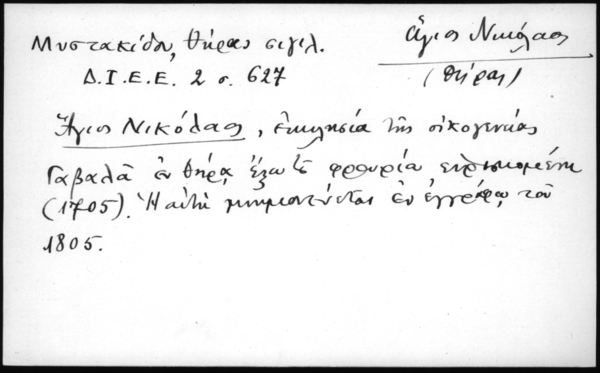 Μυστακίδου, Θήρας σιγιλ.
Δ.Ι.Ε.Ε. 2 σ. 627
Ἅγιος Νικόλαος
(Θήρας)
Ἅγιος Νικόλαος, ἐκκλησία τῆς οἰκογενείας
Γαβαλᾶ ἐν Θήρᾳ, ἔξω τ φρουρία εὑρισκομένη
(1705). Ἡ αὐτὴ μνημονεύεται ἐν ἐγγράφῳ τοῦ
1805.